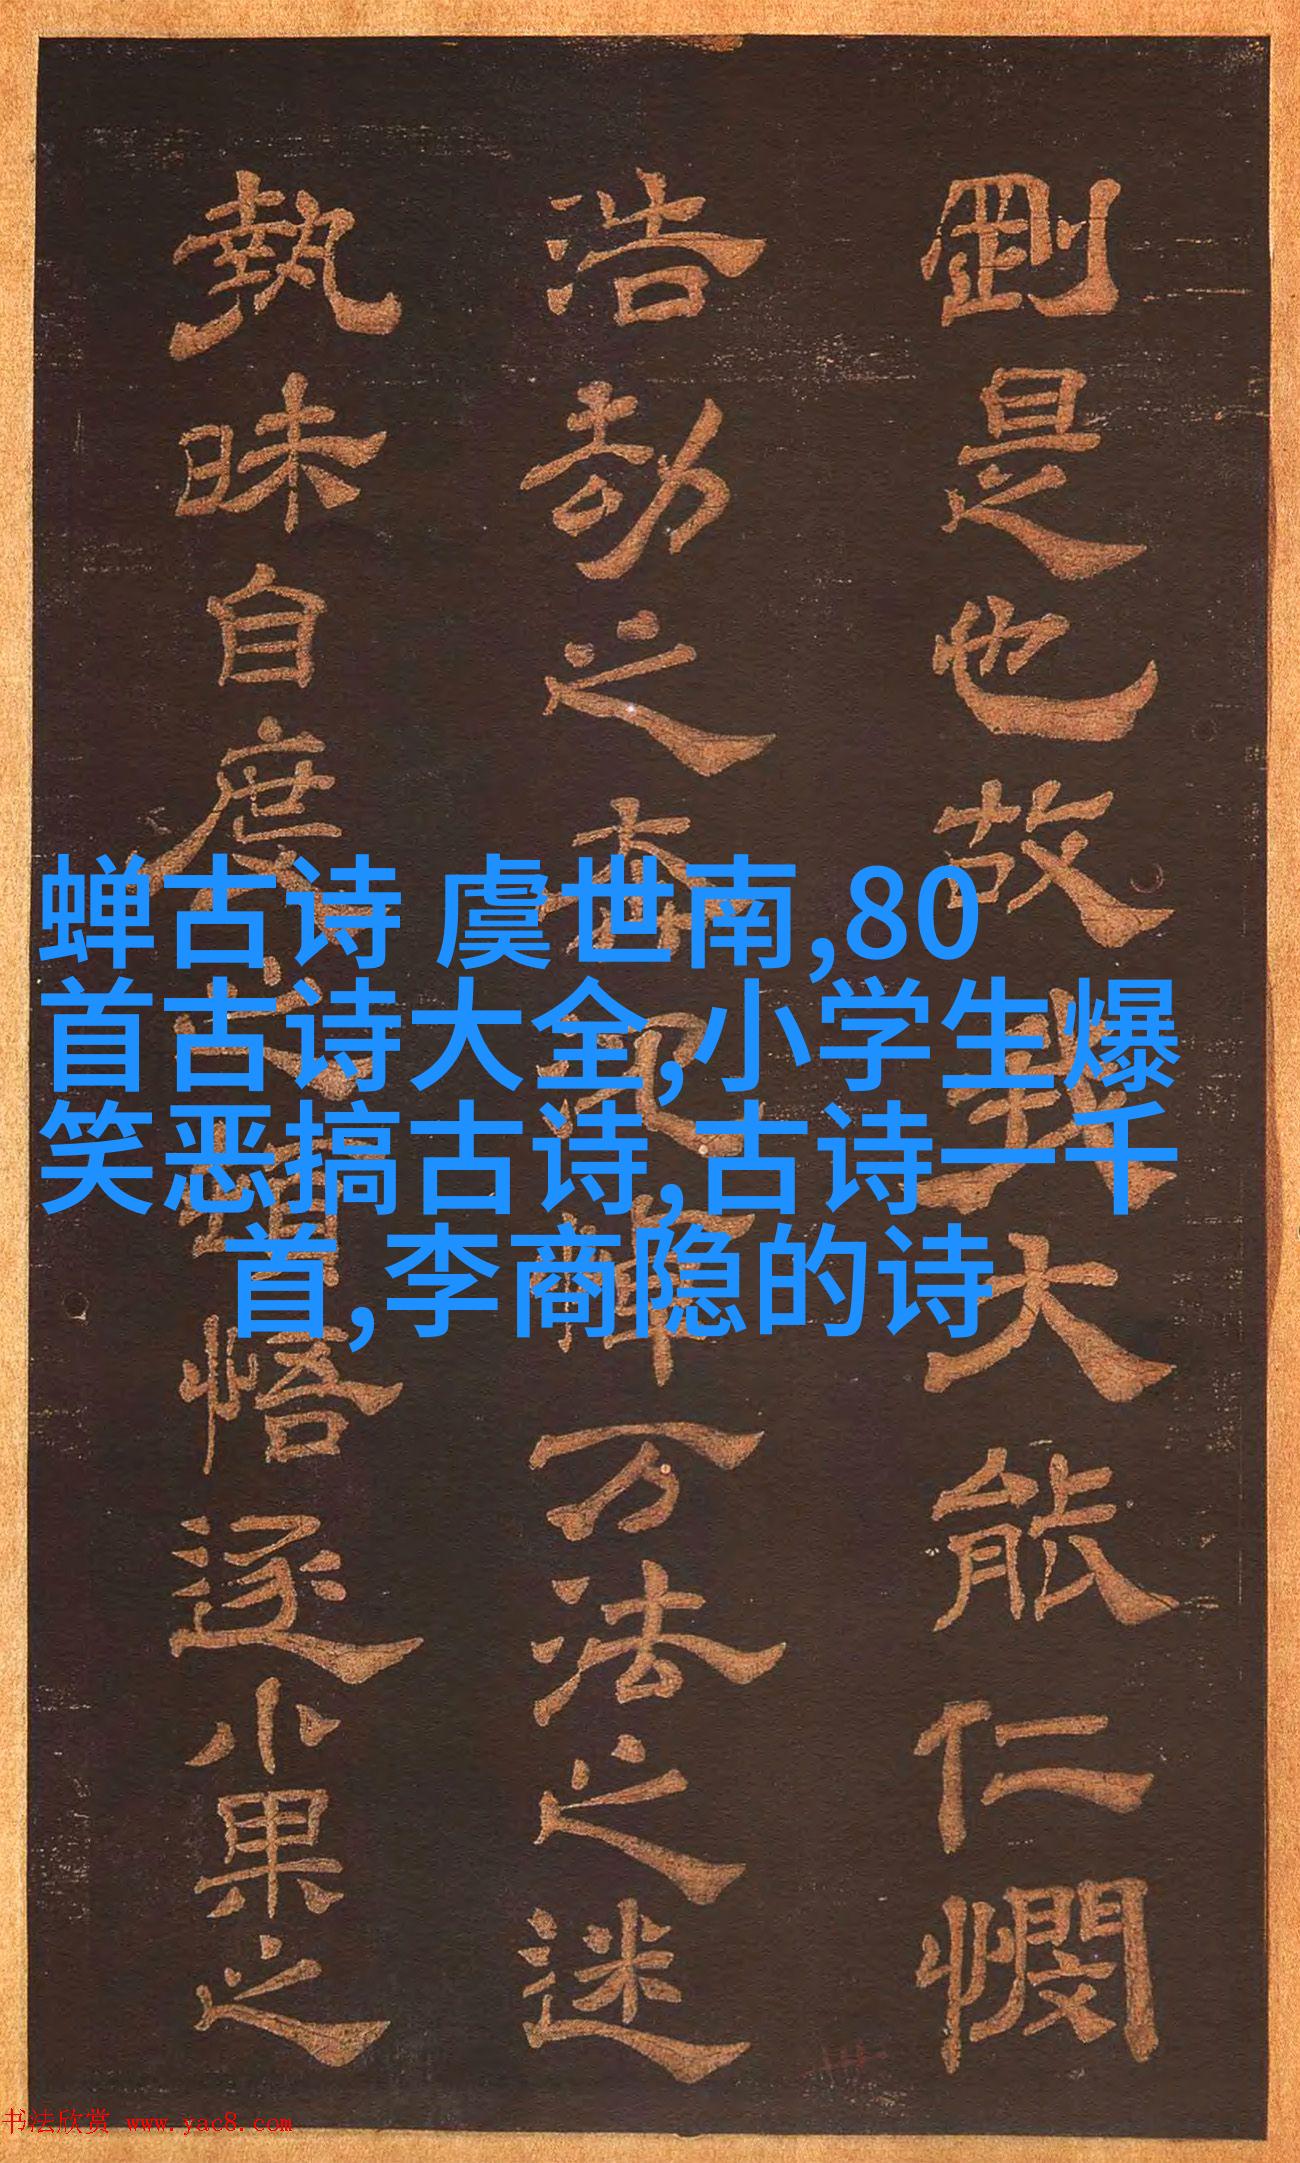 蝉古诗 虞世南,80
首古诗大全,小学生爆
笑恶搞古诗,古诗一千
首,李商隐的诗
剛是也故我大能仁憫
浩劫之万法之迷
執昧自度悟逐小果之
书法欣赏 www.yac8.com